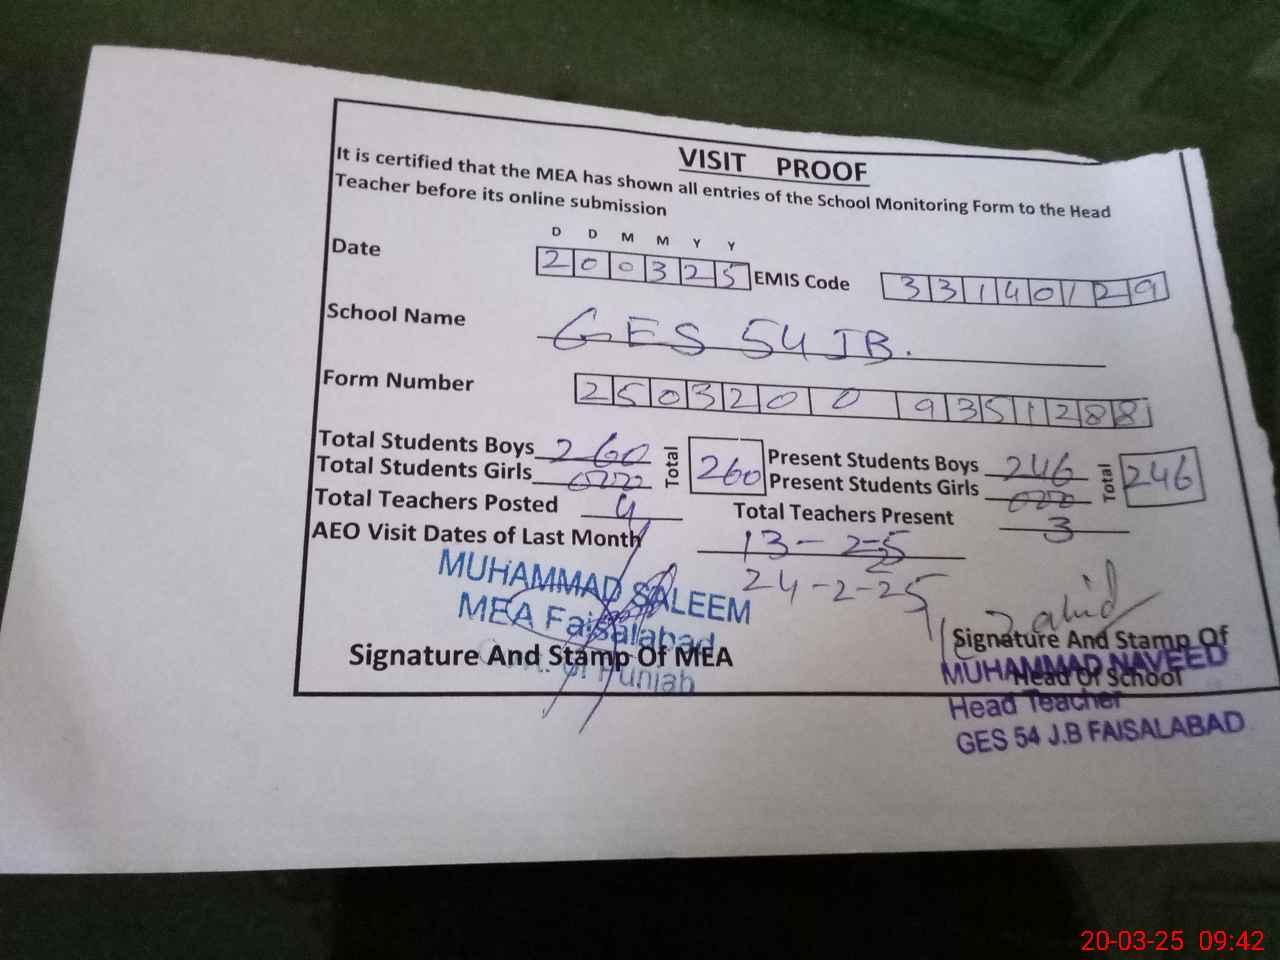 VISIT PROOF
It is certified that the MEA has shown all entries of the School Monitoring Form to the Head
Teacher before its online submission
D D M M Y Y
Date 200325 EMIS Code 33140129
School Name GES 54 JB.
Form Number 25032009351288
Total Students Boys 260 Total 260 Present Students Boys 246 Total 246
Total Students Girls 000 Present Students Girls 000
Total Teachers Posted 4 Total Teachers Present 3
AEO Visit Dates of Last Month 13-2-25
24-2-25
MUHAMMAD SALEEM
MEA Faisalabad
Govt. of Punjab
Signature And Stamp Of MEA
Signature And Stamp Of
Head Of School
MUHAMMAD NAVEED
Head Teacher
GES 54 J.B FAISALABAD
20-03-25 09:42